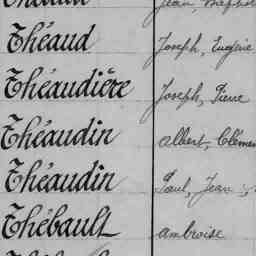 Théaud Joseph, Eugène
Théaudière Joseph, Pierre
Théaudin Albert, Clémen
Théaudin Paul, Jean
Thébault Ambroise